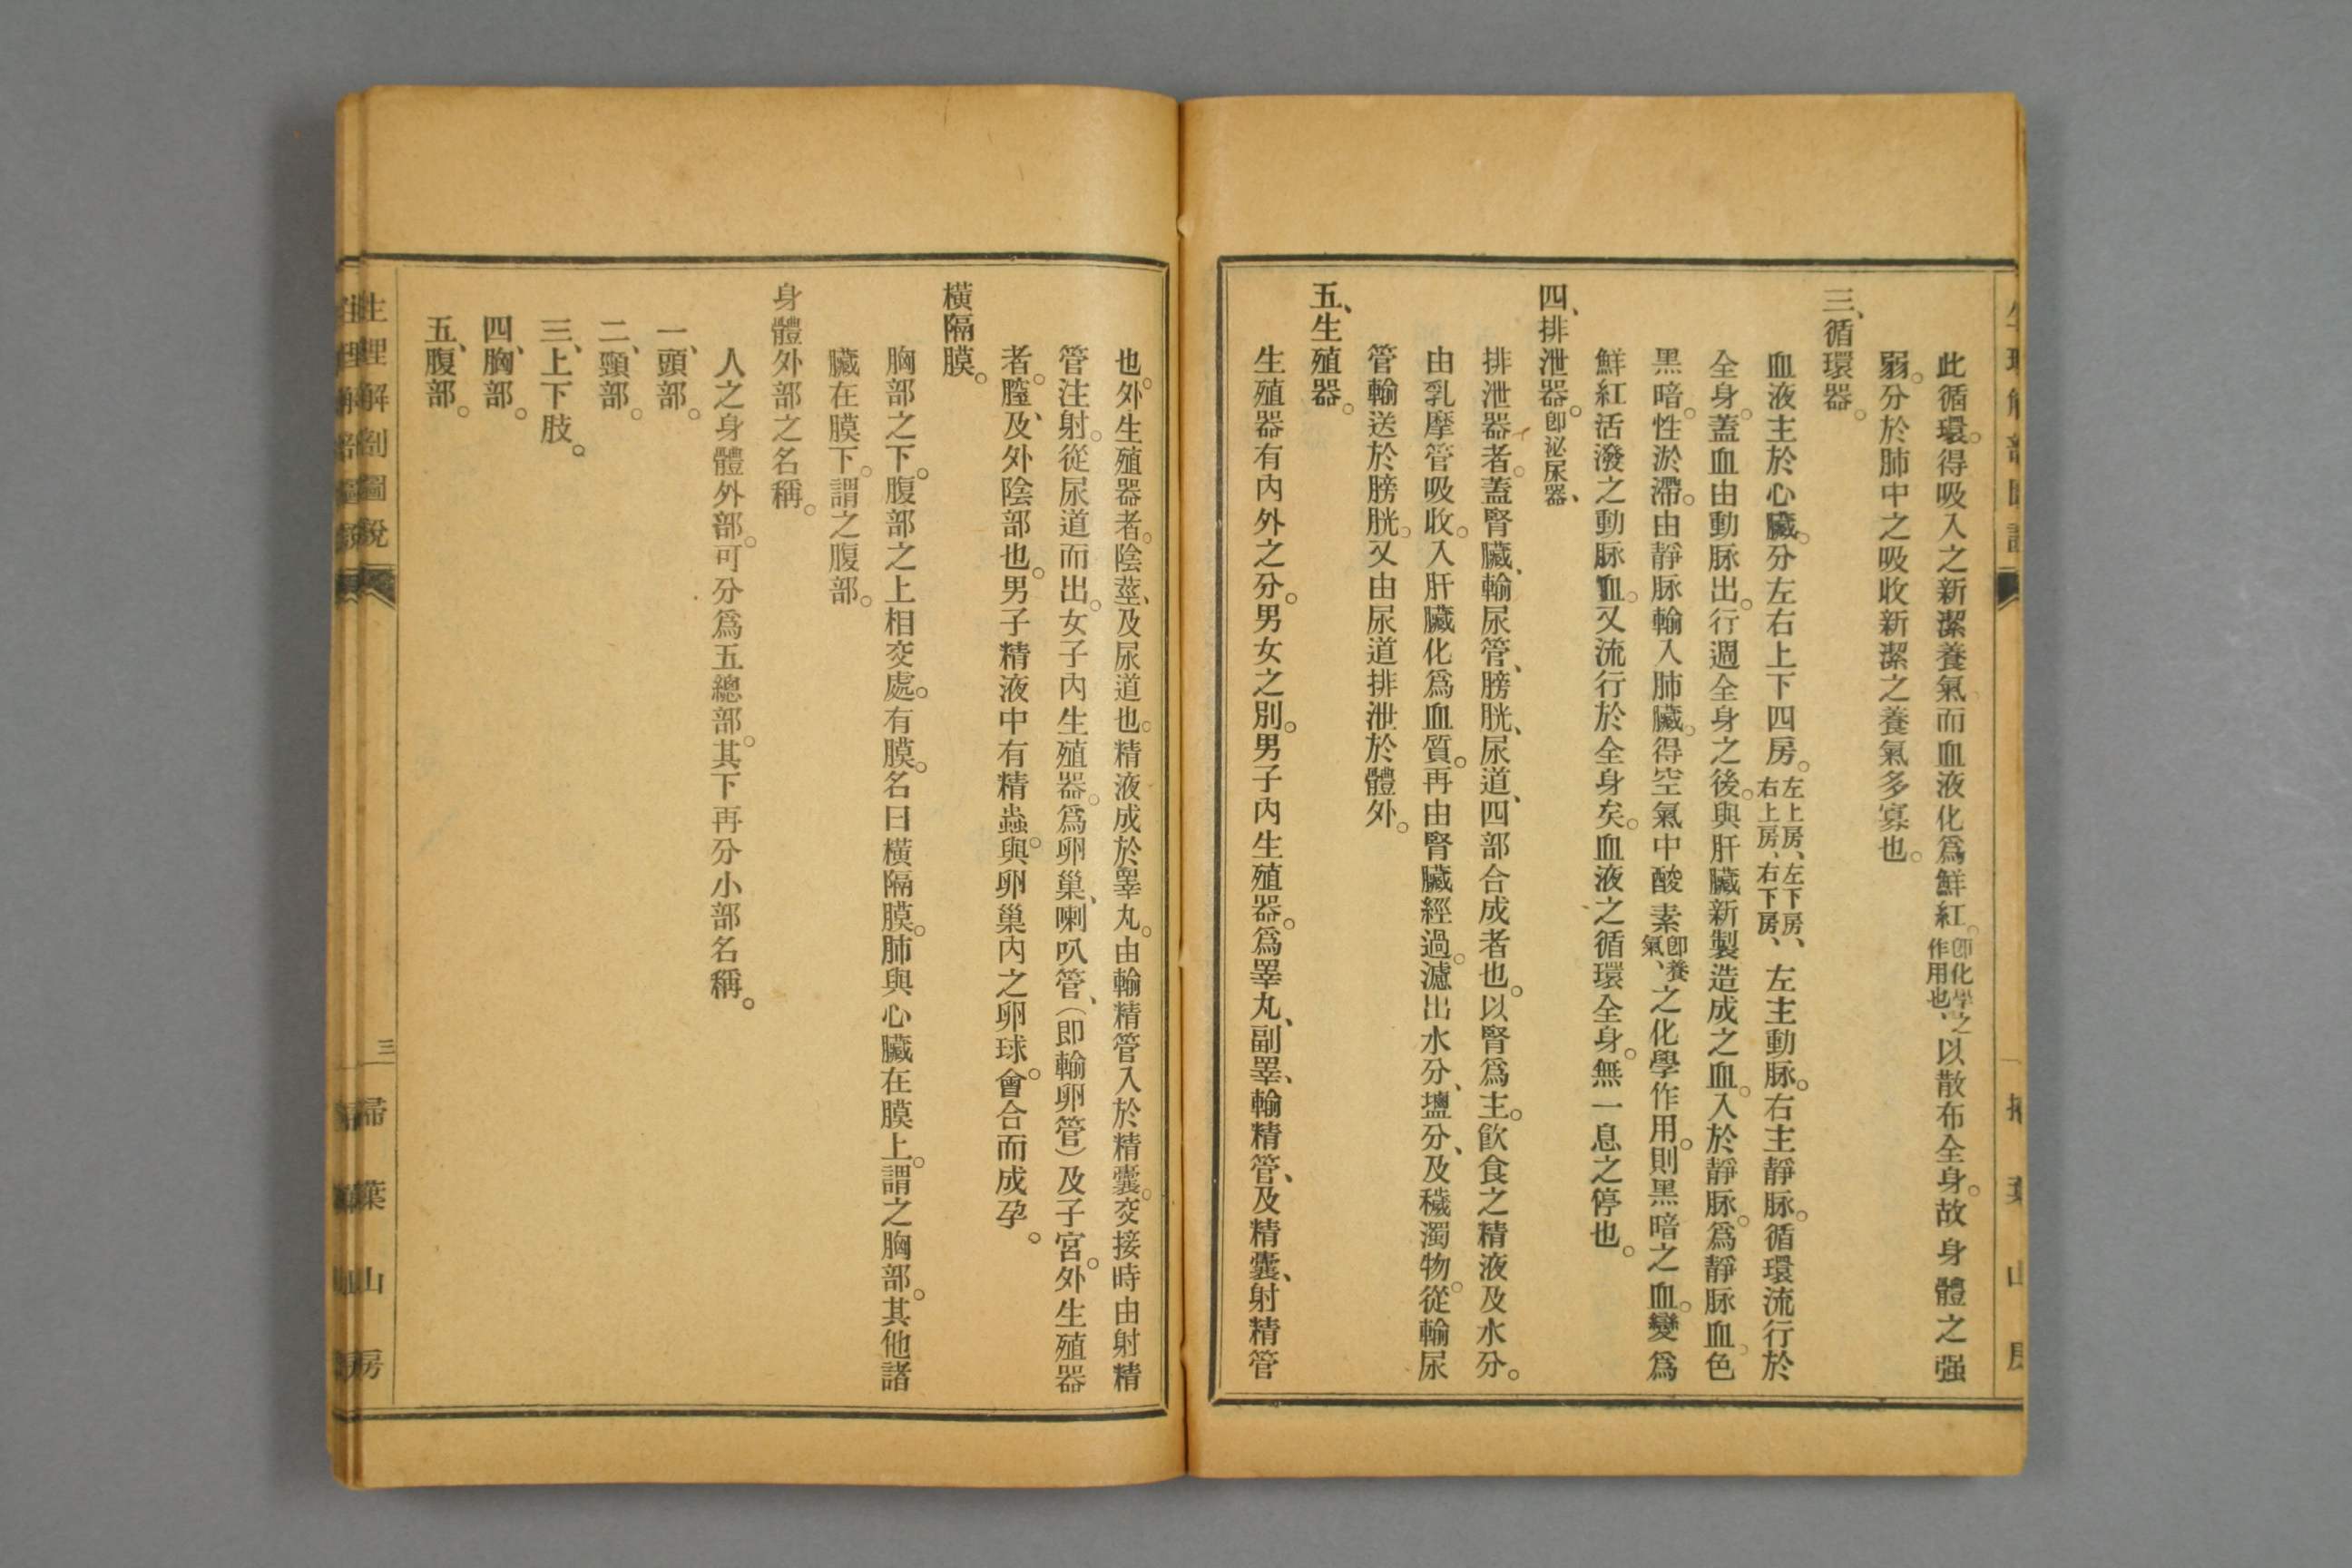 此循環。得吸入之新潔養氣。而血液化爲鮮紅。卽化學之作用也、以散布全身。故身體之强
弱。分於肺中之吸收新潔之養氣多寡也。
三、循環器。
血液主於心臟。分左右上下四房。左上房、左下房、右上房、右下房、左主動脉。右主靜脉。循環流行於
全身。蓋血由動脉出。行週全身之後。與肝臟新製造成之血。入於靜脉。爲靜脉血。色
黑暗。性淤滯。由靜脉輸入肺臟。得空氣中酸素卽養氣、之化學作用。則黑暗之血。變爲
鮮紅活潑之動脉血。又流行於全身矣。血液之循環全身。無一息之停也。
四、排泄器。卽泌尿器、
排泄器者。蓋腎臟、輸尿管、膀胱、尿道、四部合成者也。以腎爲主。飮食之精液及水分。
由乳摩管吸收。入肝臟化爲血質。再由腎臟經過。濾出水分、塩分、及穢濁物。從輸尿
管輸送於膀胱。又由尿道排泄於體外。
五、生殖器。
生殖器有內外之分。男女之別。男子內生殖器。爲睪丸、副睪、輸精管、及精囊、射精管
也。外生殖器者。陰莖、及尿道也。精液成於睪丸。由輸精管入於精囊。交接時由射精
管注射。從尿道而出。女子內生殖器。爲卵巢、喇叭管、（即輸卵管）及子宮。外生殖器
者。膣、及外陰部也。男子精液中有精蟲。與卵巢內之卵球。會合而成孕。
橫隔膜。
胸部之下。腹部之上相交處。有膜。名曰橫隔膜。肺與心臟在膜上。謂之胸部。其他諸
臟在膜下。謂之腹部。
身體外部之名稱。
人之身體外部。可分爲五總部。其下再分小部名稱。
一、頭部。
二、頸部。
三、上下肢。
四、胸部。
五、腹部。
生理解剖圖說
三
掃葉山房